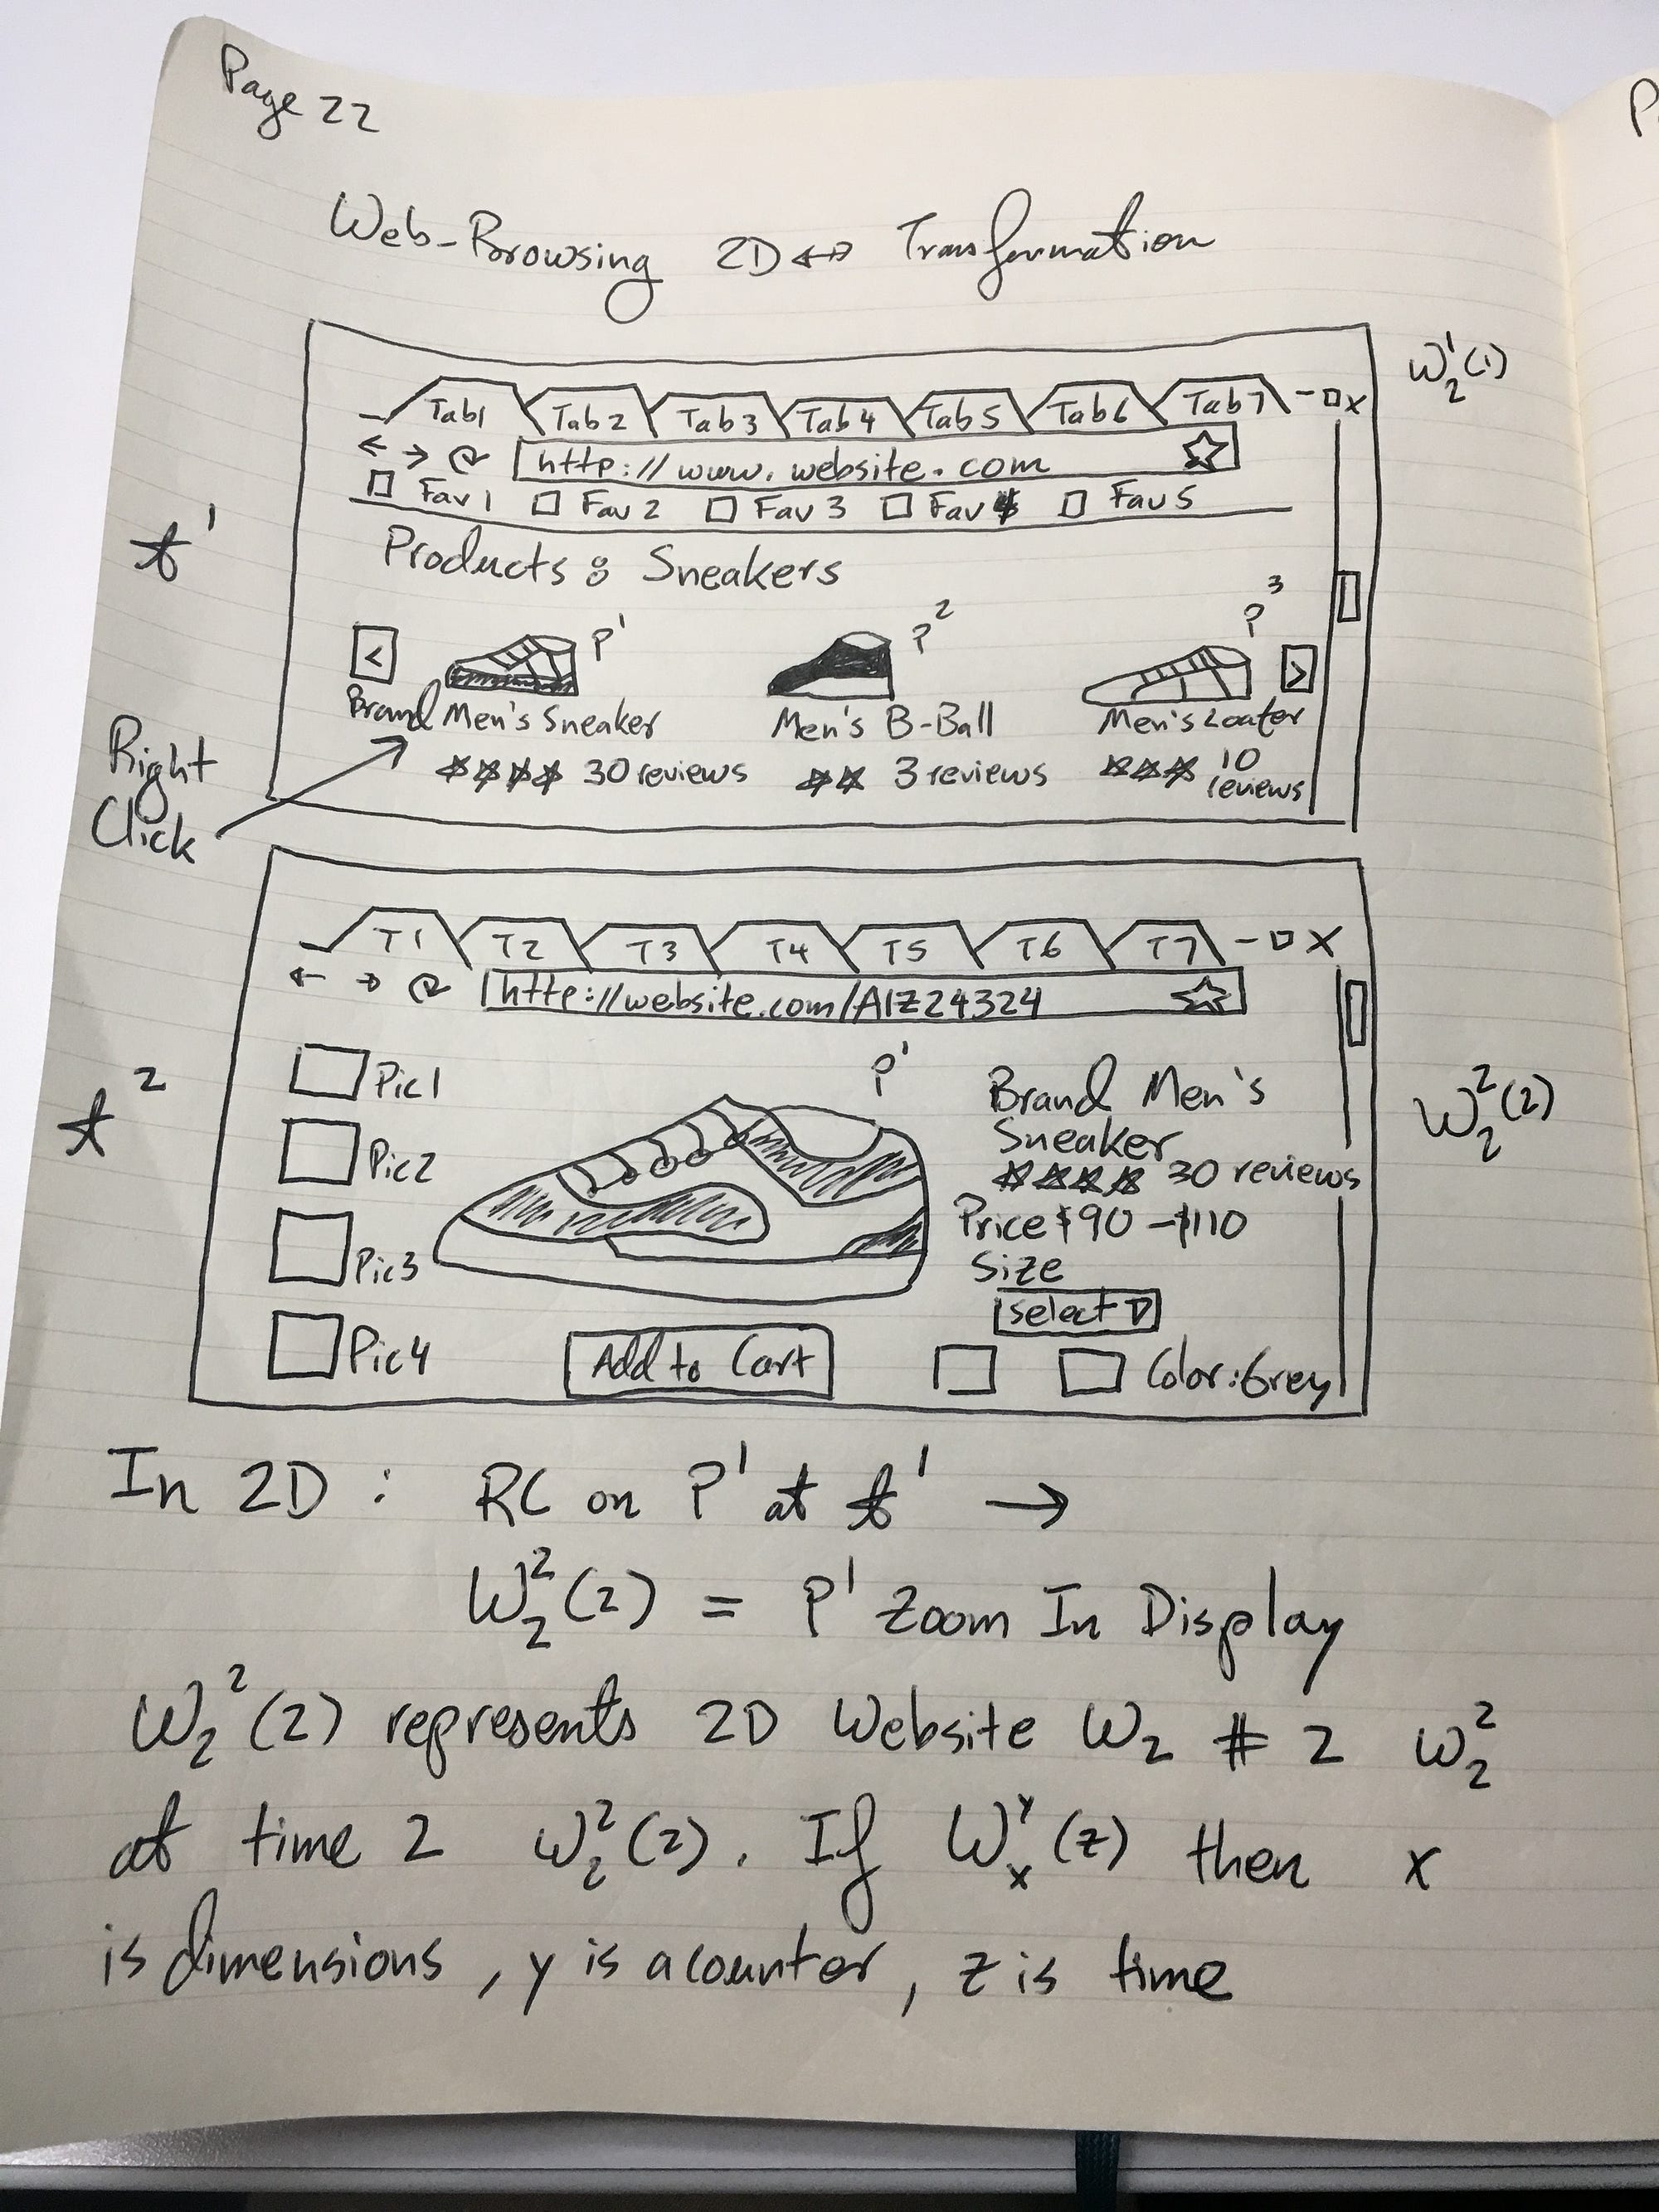 Page 22
P
Web-Browsing 2D ↔ Transformation
W₂¹(1)
Tab1 Tab2 Tab3 Tab4 Tab5 Tab6 Tab7 - □ x
← → http://www.website.com
Fav1 Fav2 Fav3 Fav4 Fav5
t¹
Products: Sneakers
< P¹ P² P³ >
Brand Men's Sneaker Men's B-Ball Men's Loafer
30 reviews 3 reviews 10
reviews
Right
Click
T1 T2 T3 T4 T5 T6 T7 - □ X
← → http://website.com/A1Z24324
t²
W₂²(2)
Pic1
Pic2
Pic3
Pic4
P¹
Brand Men's
Sneaker
30 reviews
Price $90 - $110
Size
select ▽
Add to Cart
Color: Grey
In 2D : RC on P¹ at t¹ →
W₂²(2) = P¹ Zoom In Display
W₂²(2) represents 2D Website W₂ # 2 W₂²
at time 2 W₂²(2). If Wₓʸ(z) then x
is dimensions, y is a counter, z is time